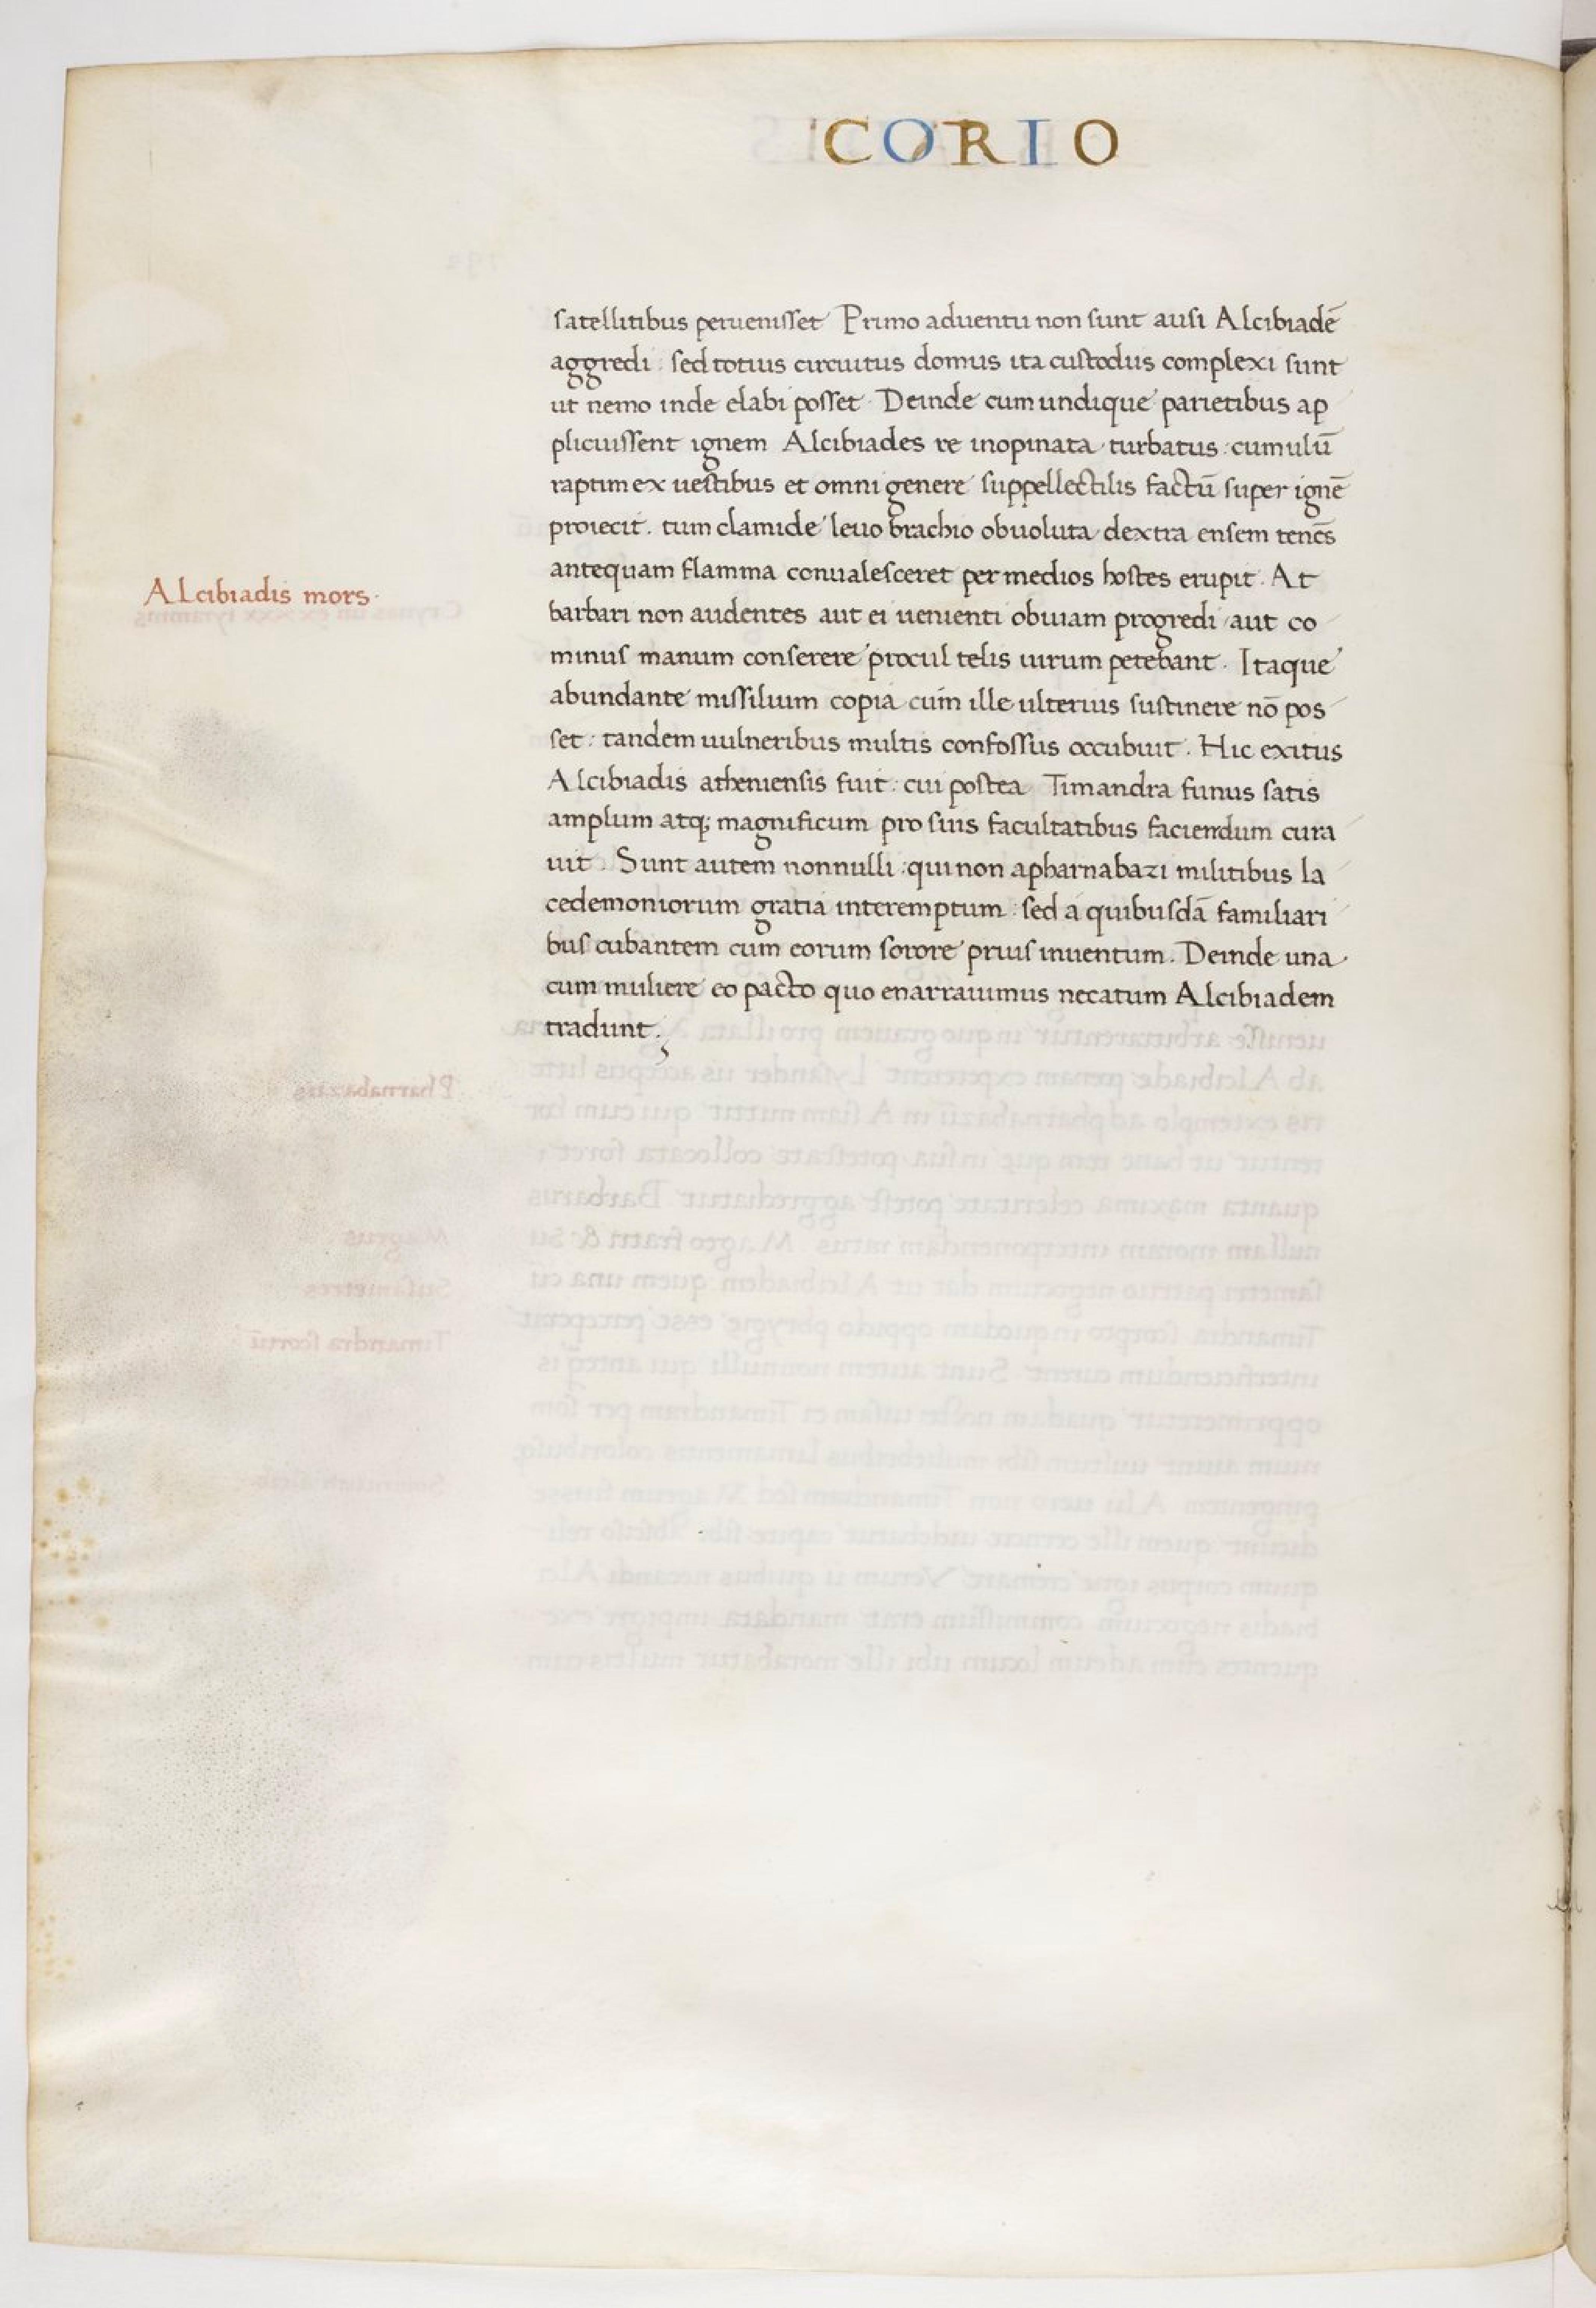 CORIO
satellitibus peruenisset Primo aduentu non sunt ausi Alcibiadē
aggredi: sed totius circuitus domus ita custodiis complexi sunt
ut nemo inde elabi posset. Deinde cum undique parietibus ap
plicuissent ignem Alcibiades re inopinata turbatus: cumulū
raptim ex uestibus et omni genere suppellectilis factū super ignē
proiecit. tum clamide leuo brachio obuoluta dextra ensem tenēs
antequam flamma conualesceret per medios hostes erupit. At
Alcibiadis mors.
barbari non audentes aut ei uenienti obuiam progredi aut co
minus manum conserere procul telis uirum petebant. Itaque
abundante missilium copia cum ille ulterius sustinere nō pos
set: tandem uulneribus multis confossus occubuit. Hic exitus
Alcibiadis atheniensis fuit: cui postea Timandra funus satis
amplum atq; magnificum pro suis facultatibus faciendum cura
uit. Sunt autem nonnulli: qui non apharnabazi militibus la
cedemoniorum gratia interemptum: sed a quibusdā familiari
bus cubantem cum eorum sorore prius inuentum. Deinde una
cum muliere eo pacto quo enarrauimus necatum Alcibiadem
tradunt.